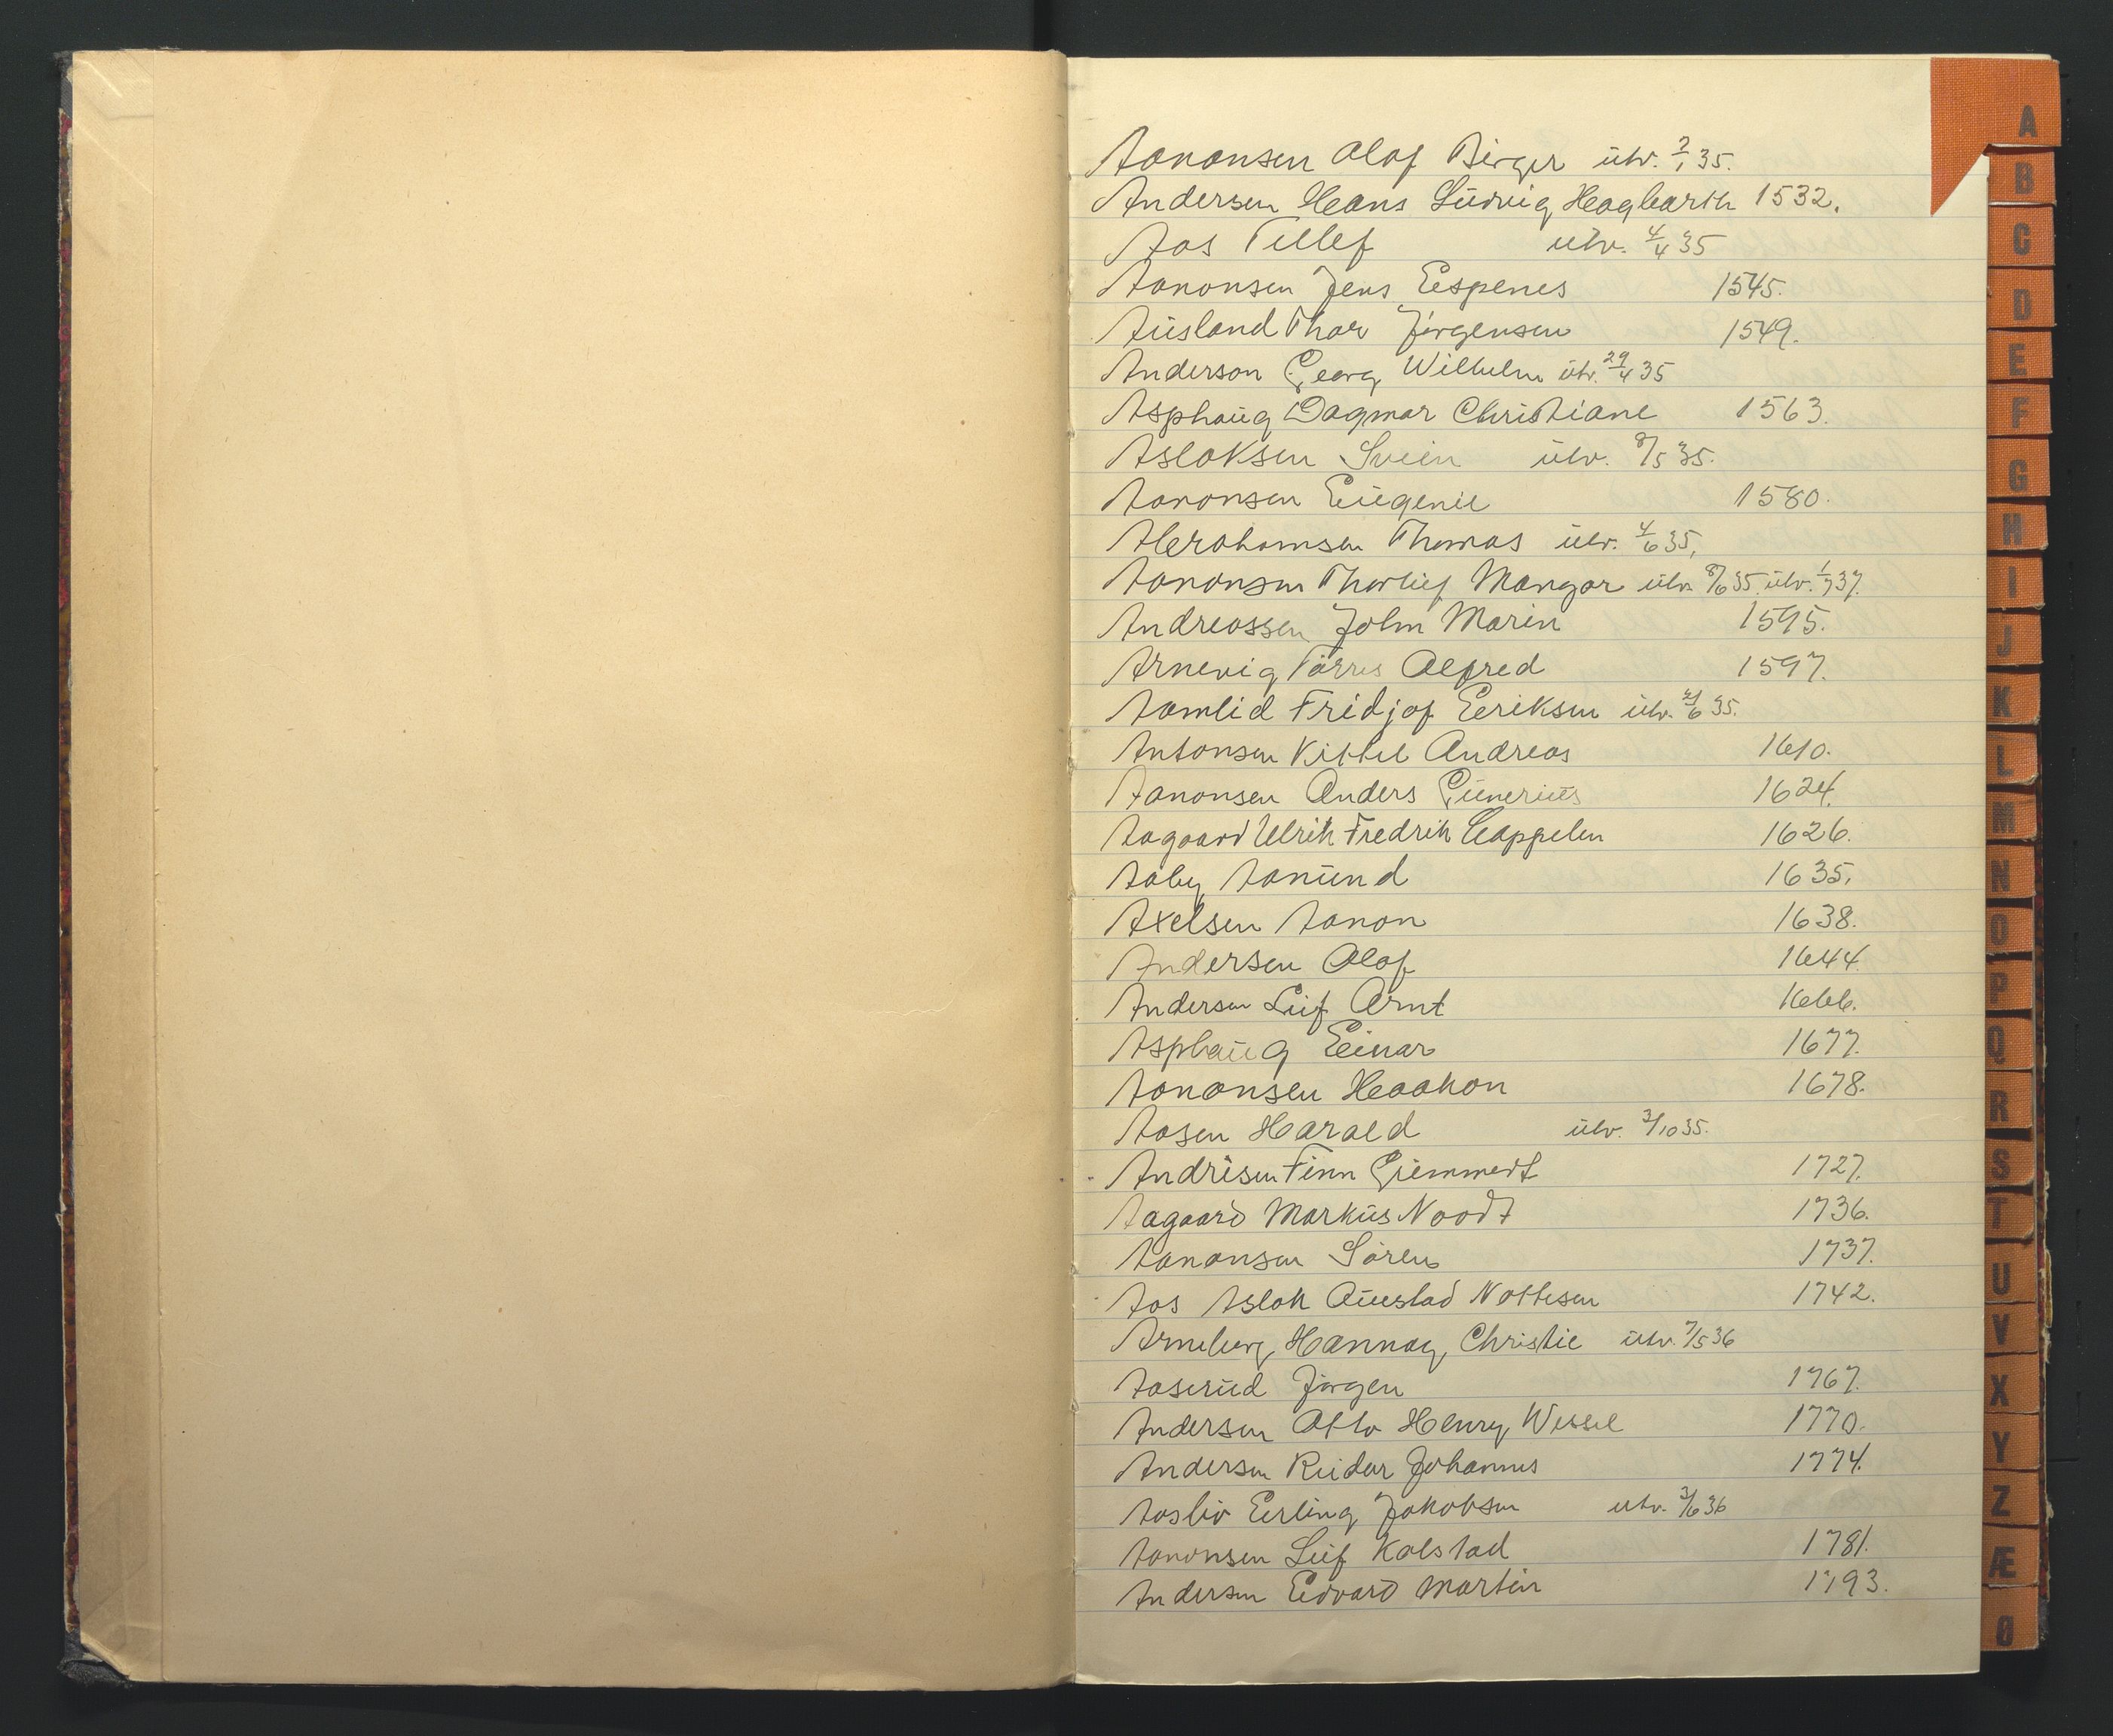 Aanonsen Olaf Birger utv. 2/1 35.
Andersen Hans Ludvig Hagbarth 1532.
Aas Tellef utv. 4/4 35
Aanonsen Jens Espenes 1545.
Ausland Thor Jørgensen 1549.
Anderson Georg Wilhelm utv. 29/4 35
Asphaug Dagmar Christiane 1563.
Aslaksen Svein utv. 8/5 35.
Aanonsen Eugenie 1580.
Abrahamsen Thomas utv. 4/6 35.
Aanonsen Thorleif Mangor utv. 8/6 35. utv. 1/7 37.
Andreassen John Marin 1595.
Arnevig Tørres Alfred 1597.
Aamlid Fridjof Eriksen utv. 6 35.
Antonsen Kittel Andreas 1610.
Aanonsen Anders Gunerius 1624.
Aagaard Ulrik Fredrik Cappelen 1626.
Aaby Aanund 1635.
Axelsen Aanon 1638.
Andersen Olaf 1644.
Andersen Leif Arnt 1666.
Asphaug Einar 1677.
Aanonsen Haakon 1678.
Aasen Harald utv. 3/10 35.
Andrisen Finn Gummert 1727.
Aagaard Markus Noodt 1736.
Aanonsen Søren 1737.
Aas Aslak Austad Nottesen 1742.
Arneberg Hannay Christie utv. 7/5 36
Aaserud Jørgen 1767.
Andersen Otto Henry Wessel 1770.
Andersen Reidar Johannes 1774.
Aasliv Erling Jakobsen utv. 3/6 36
Aanonsen Leif Kalstad 1781.
Andersen Edvard Martin 1793.
A
B
C
D
E
F
G
H
I
J
K
L
M
N
O
P
Q
R
S
T
U
V
X
Y
Z
Æ
Ø